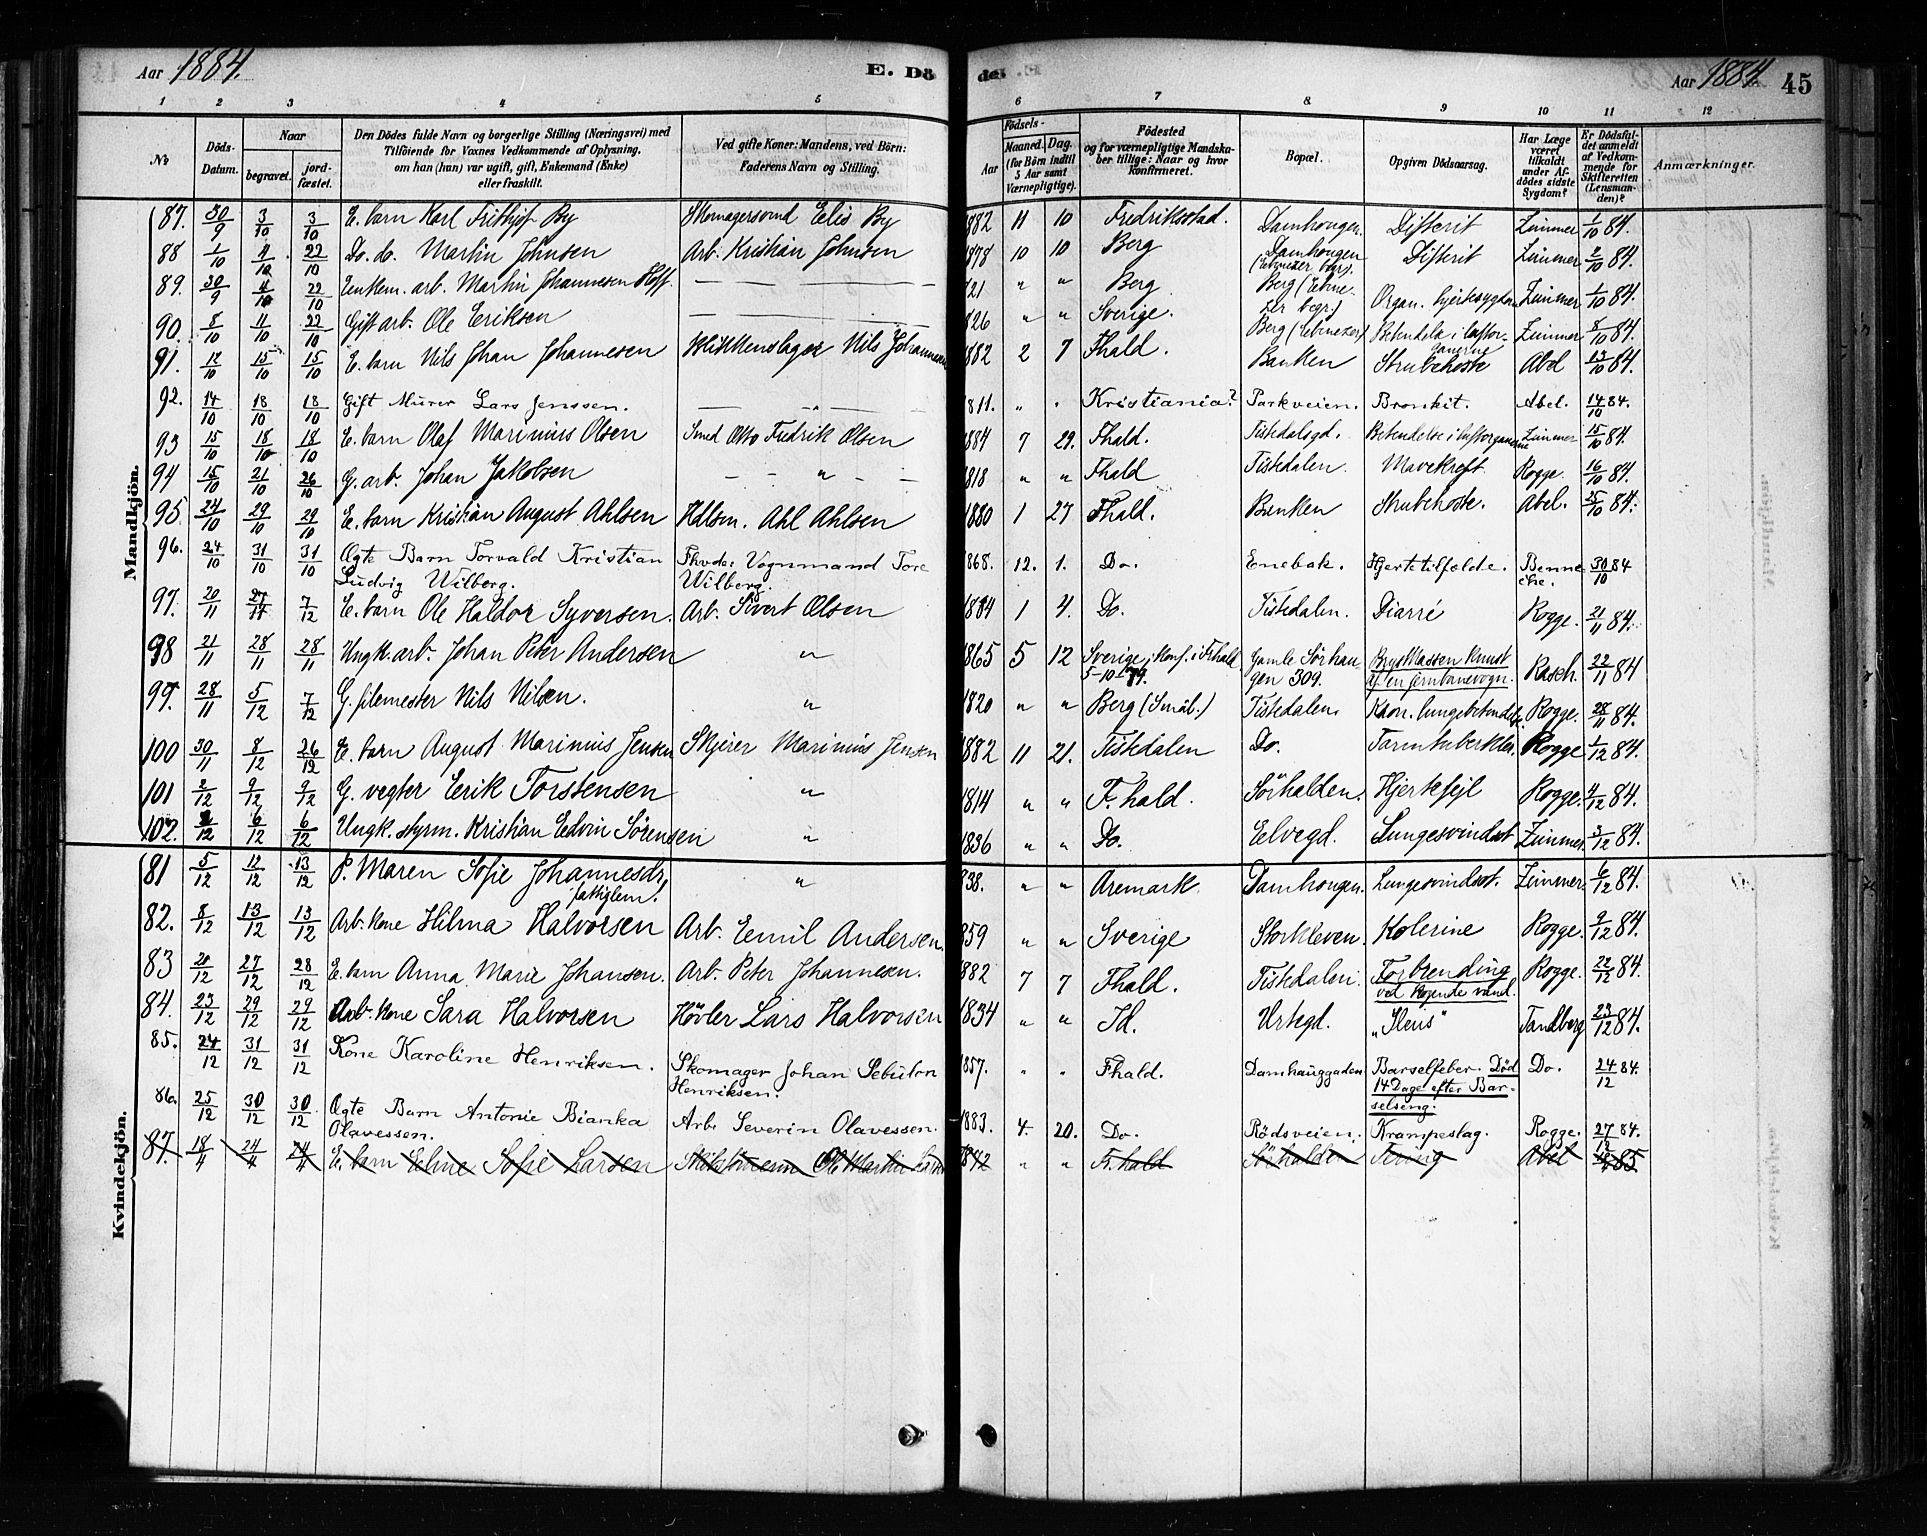 Aar 1884.
E. Dö
1 2 3 4 5
No
Döds-Datum.
Naar
begravet.
jordfæstet.
Den Dödes fulde Navn og borgerlige Stilling (Næringsvei) med
Tilföiende for Voxnes Vedkommende af Oplysning.
om han (han) var ugift, gift, Enkemand (Enke)
eller fraskilt.
Ved gifte Koner: Mandens, ved Börn:
Faderens Navn og Stilling.
de.
Aar 1884. 45
6 7 8 9 10 11 12
Födsels-
Aar
Maaned. Dag.
(for Börn indtil
5 Aar samt
Værnepligtige).
Födested
og for værnepligtige Mandska-
ber tillige: Naar og hvor
konfirmeret.
Bopæl.
Opgiven Dödsaarsag.
Har Læge
været
tilkaldt
under Af-
dödes sidste
Sygdom?
Er Dödsfal-
det anmeldt
af Vedkom-
mende for
Skifteretten
(Lensman-
den)?
Anmærkninger.
Mandkjön.
87. 30/9 3/10 3/10 E. barn Karl Frithjof By Skomagersvend Elis By 1882 11 10 Fredriksstad. Damhougen. Difterit Zimmer 1/10 84.
88 1/10 4/10 22/10 Do. do. Martin Johnsen Arb. Kristian Johnsen 1878 10 10 Berg Damhougen Difterit Zimmer 2/10 84.
(Ebenezer begr).
89. 30/9 4/10 22/10 Enkem. arb. Martin Johannesen Hoff. — — — 21 " " Berg Berg (Ebne- Organ. hjertesygdom Zimmer 1/10 84.
zer begr.)
90. 8/10 11/10 22/10 Gift arb. Ole Eriksen — 26 " " Sverige. Berg (Ebenezer) Betendelse i luftor- Zimmer 8/10 84.
ganerne
91. 12/10 15/10 15/10 E. barn Nils Johan Johannesen Blikkenslager Nils Johannesen 1882 2 7 Fhald. Banken Strubehoste Abel 13/10 84.
92. 14/10 18/10 18/10 Gift Murer Lars Jenssen. — " — 1811. " " Kristiania? Parkveien. Bronkit. Abel. 14/10 84.
93 15/10 18/10 18/10 E. barn Olaf Marinius Olsen Smed Otto Fredrik Olsen 1884 7 29. Fhald. Tistedalsgd. Betendelse i luftorganerne Zimmer 15/10 84.
94 15/10 21/10 26/10 G. arb. Johan Jakobsen — " — 1818 " " Fhald Tistedalen. Mavekreft Rogge. 16/10 84.
95. 24/10 29/10 29/10 E. barn Kristian August Ahlsen Hdlsm. Ahl Ahlsen 1880 1 27 Fhald. Banken Strubehoste. Abel. 25/10 84.
96. 24/10 31/10 31/10 Ogte Barn Torvald Kristian Fhvde: Vognmand Tore 1868. 12. 1. Do. Enebak. Hjertetilfelde. Benne- 30/10 84
Ludvig Wilberg. Wilberg. che.
97. 20/11 27/11 7/12 E. barn Ole Haldor Syversen. Arb. Sivert Olsen 1884 1 4. Do. Tistedalen. Diarré Rogge. 21/11 84.
98 21/11 28/11 28/11 Ungk. arb. Johan Peter Andersen " 1865 5 12 Sverige, konf. i Fhald Gamle Sörhau- Brystkassen knust Rasch. 22/11 84
5-10-79. gen 309. af en jernbanevogn.
99. 28/11 5/12 7/12 G. filemester Nils Nilsen. " 1820 " " Berg (Smål.) Tistedalen. Kron. lungebetendelse. Rogge. 28/11 84.
100 30/11 8/12 26/12 E. barn August Marinius Jensen Skjærer Marinius Jensen 1882 11 21. Tistedalen Do. Tarmtuberkler. Rogge 1/12 84.
101 2/12 9/12 9/12 G. vegter Erik Torstensen " 1814 " " F.hald. Sörhalden. Hjertefejl Rogge. 4/12 84.
102. 2/12 6/12 6/12 Ungk. styrm. Kristian Edvin Sörensen " 1836 " " Do. Elvegd. Lungesvindsot Zimmer. 3/12 84.
Kvindekjön.
81 5/12 12/12 13/12 P. Maren Sofie Johannesdr. " 38. " " Aremark. Damhougen. Lungesvindsot. Zimmer. 6/12 84.
fattiglem.
82. 8/12 13/12 13/12 Arb. kone Hilma Halvorsen Arb. Emil Andersen. 859 " " Sverige Storkleven. Kolerine Rogge. 9/12 84.
83 20/12 27/12 28/12 E. barn Anna Marie Johansen. Arb. Peter Johannesen. 1882 7 7 Fhald. Tistedalen. Forbrending Rogge. 22/12 84.
ved kogende vand.
84. 23/12 29/12 29/12 Arb. kone Sara Halvorsen Hövler Lars Halvorsen 1834 " " Id. Urtegd. "Ileus" Tandberg 23/12 84.
85. 24/12 31/12 31/12 Kone Karoline Henriksen. Skomager Johan Sebulon 1857. " " Fhald. Damhauggaden Barselfeber. Död Do. 24/12 84.
Henriksen. 14 Dage efter Bar-
selseng.
86. 25/12 30/12 30/12 Ogte Barn Antonie Bianka Arb. Severin Olavessen. 1883. 4. 20. Do. Rödsveien. Krampeslag. Rogge. 27/12 84.
Olavessen.
87. 18/4 24/4 24/4 E. barn Eline Sofie Larsen Ole Martin Larsen 1842 " " Fr.hald Sörhalden Tering Abel 85